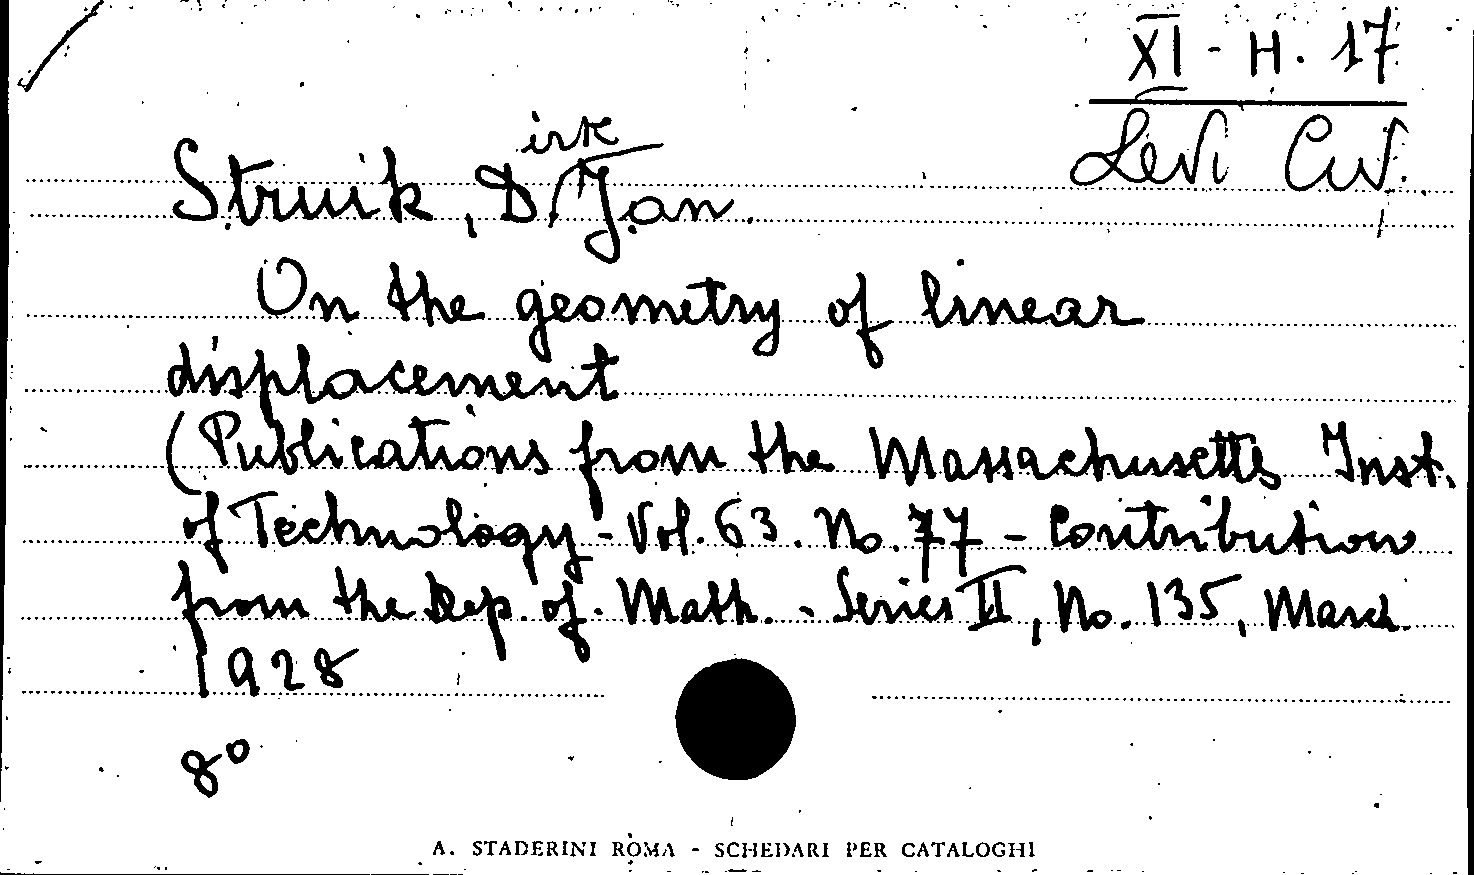 XI - H. 17
Levi Civ.
Struik, Dirk Jan.
On the geometry of linear
displacement
(Publications from the Massachusetts Inst.
of Technology - Vol. 63. No. 77 - Contribution
from the Dep. of. Math. - Series II, No. 135, March
1928
8°
A. STADERINI ROMA - SCHEDARI PER CATALOGHI